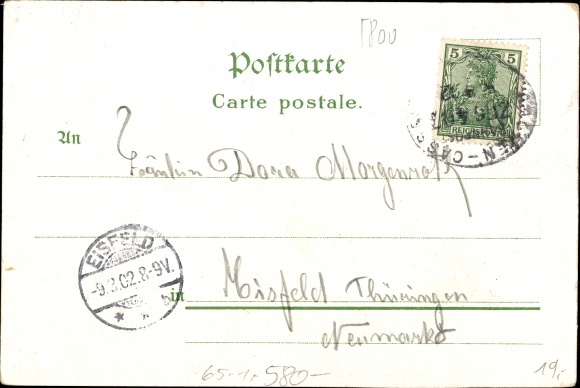 1800
Postkarte
Carte postale.
5 5
REICHSPOST
An
Fräulein Dora Morgenroth
EISFELD
9.3.02.8-9V.
* * b
in Eisfeld Thüringen
Neumarkt
65-1. 580-
19,-